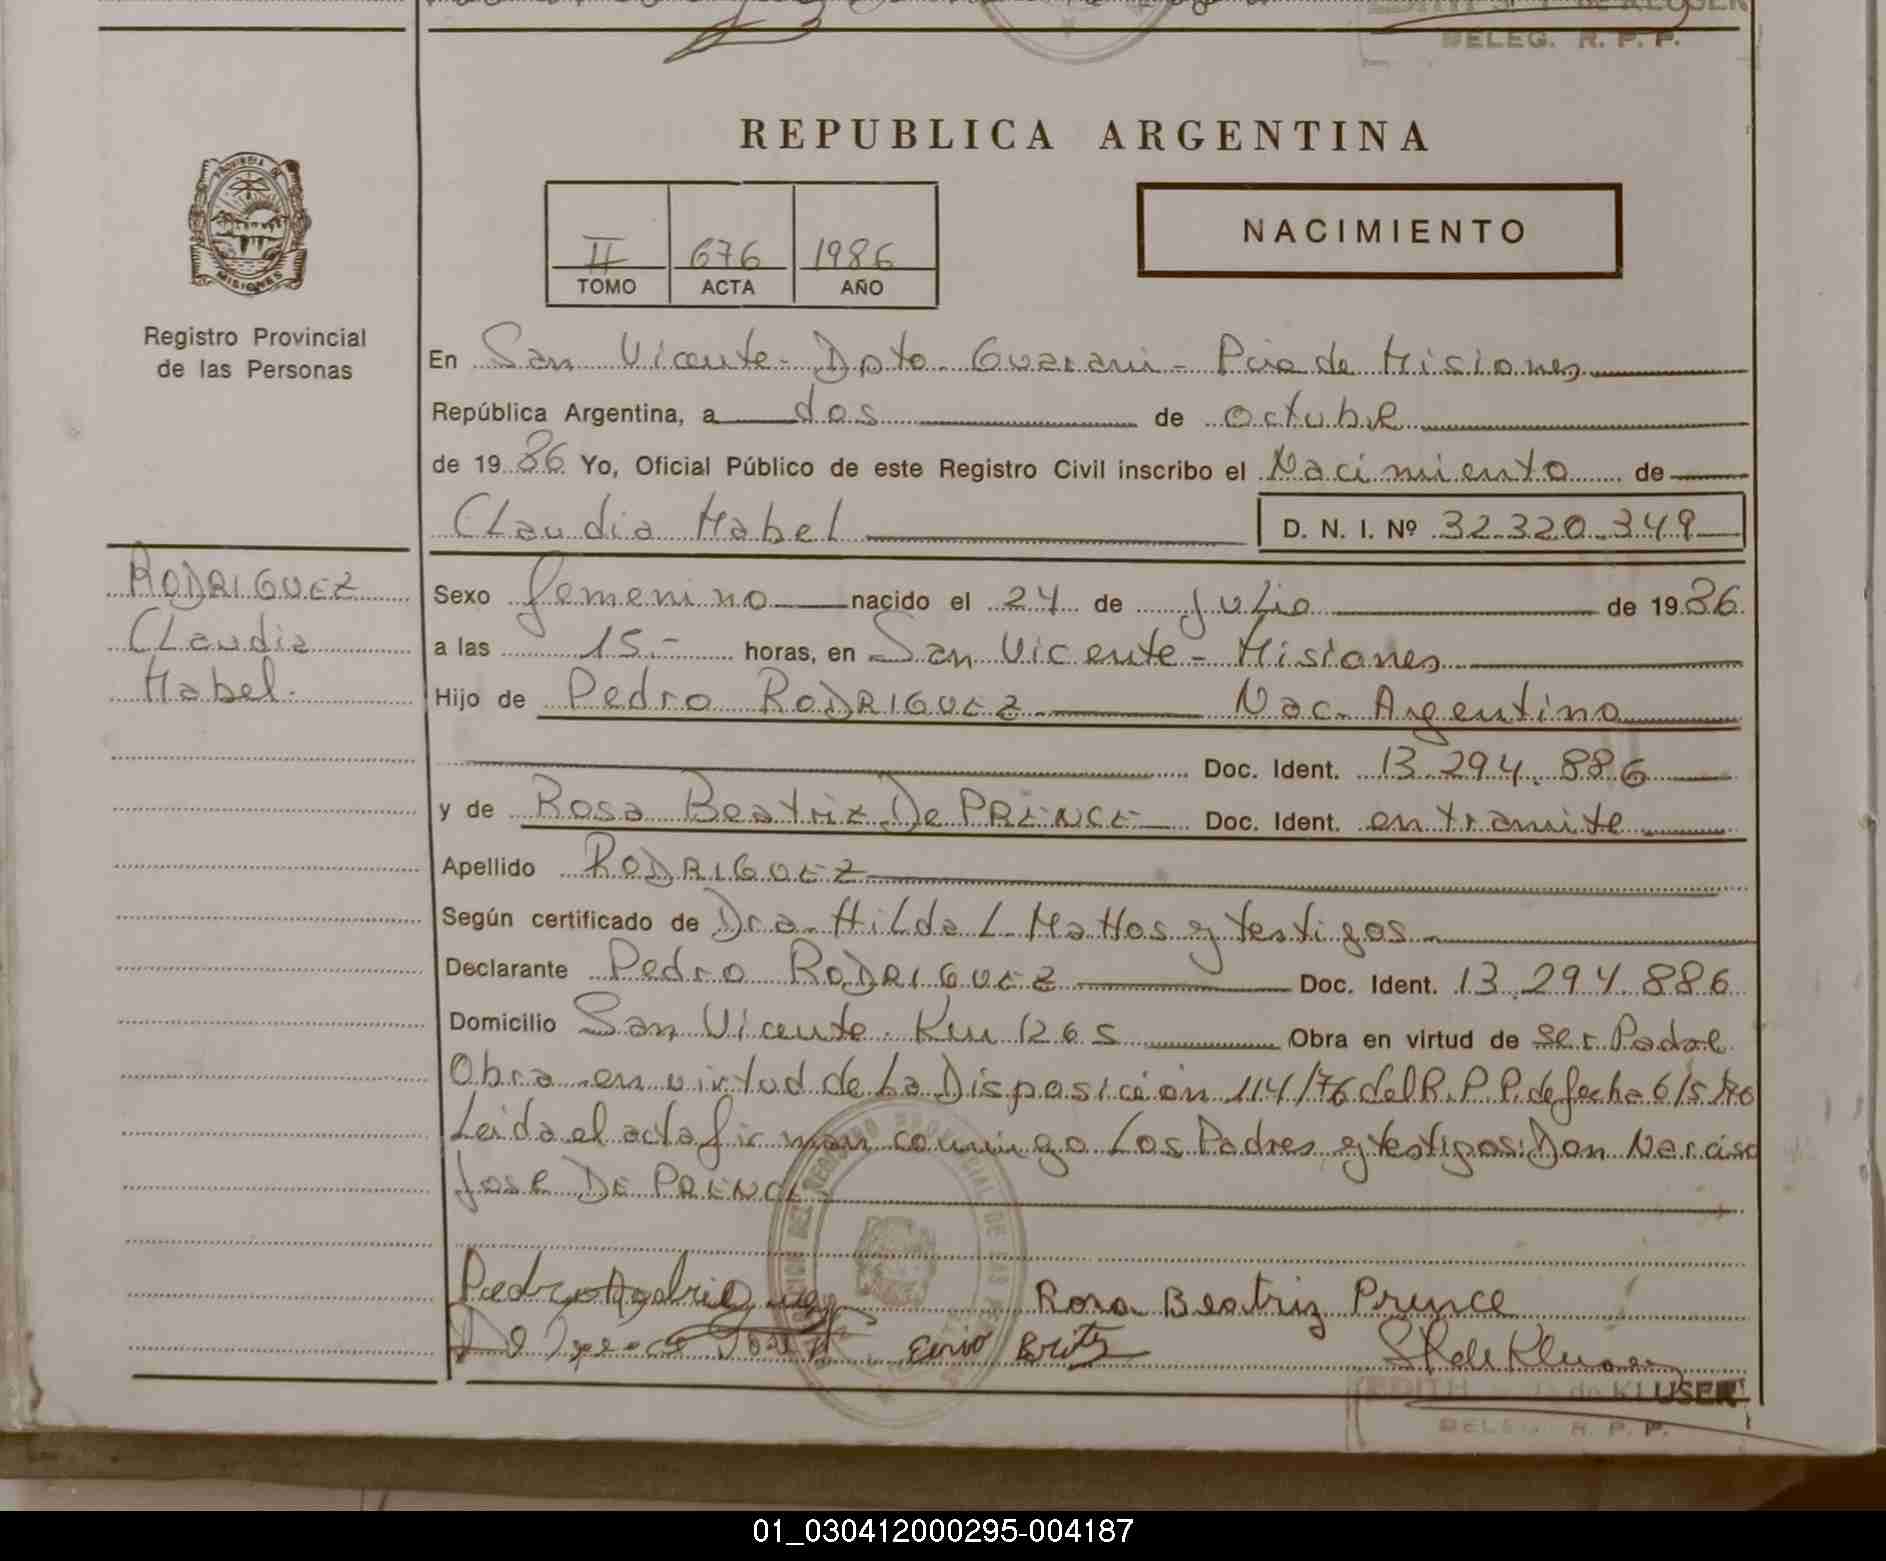 DELEG. R. P. P.
REPUBLICA ARGENTINA
PROVINCIA DE MISIONES
Registro Provincial
de las Personas
II 676 1986
TOMO ACTA AÑO
NACIMIENTO
En San Vicente - Dpto - Guarani - Pcia de Misiones
República Argentina, a dos de octubre
de 1986 Yo, Oficial Público de este Registro Civil inscribo el Nacimiento de
Claudia Mabel D. N. I. Nº 32.320.349
RODRIGUEZ
Claudia
Mabel.
Sexo femenino nacido el 24 de Julio de 1986
a las 15.- horas, en San Vicente - Misiones
Hijo de Pedro RODRIGUEZ Nac. Argentino
Doc. Ident. 13.294.886
y de Rosa Beatriz De PRENCE Doc. Ident. en tramite
Apellido RODRIGUEZ
Según certificado de Dra. Hilda L. Mattos y testigos
Declarante Pedro RODRIGUEZ Doc. Ident. 13.294.886
Domicilio San Vicente. Km 1265 Obra en virtud de ser Padre
Obra en virtud de La Disposición 114/76 del R.P.P. de fecha 6/5/76
Leida el acta firman conmigo Los Padres y testigos: Don Narciso
Jose DE PRENCE
Pedro Rodriguez Rosa Beatriz Prence
EDITH de KLUSER
DELEG. R. P. P.
01_030412000295-004187